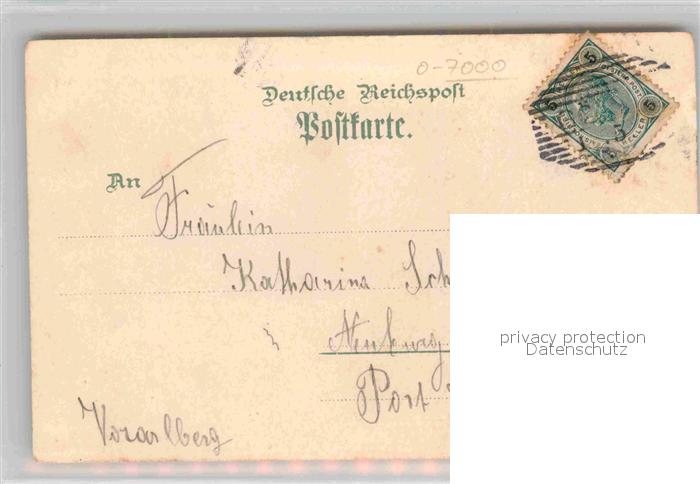 0-7000
Deutsche Reichspost
Postkarte.
An
Fräulein
Katharina Sch
Neuburg
Post
Vorarlberg
5 5 5
HELLER
privacy protection
Datenschutz